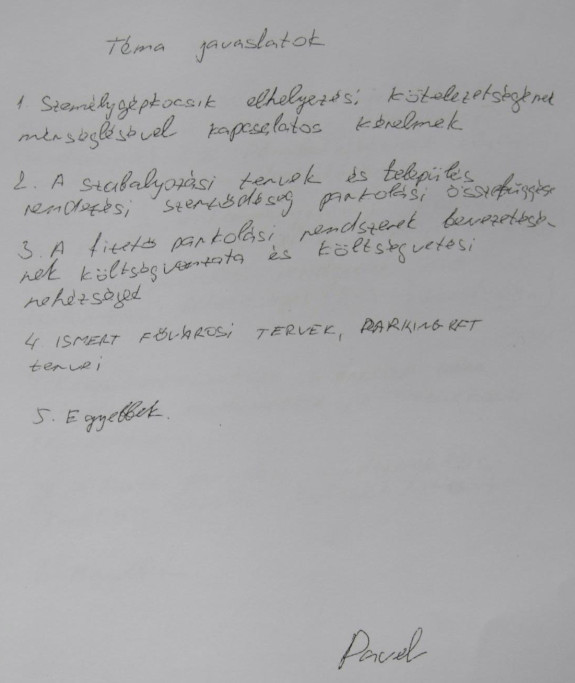 Téma javaslatok
1. Személygépkocsik elhelyezési kötelezetségének
mérséglésével kapcsolatos kérelmek
2. A szabályozási tervek és település
rendezési szerződéség parkolási összefüggése
3. A fizető parkolási rendszerek bevezetésé-
nek költségvonzata és költségvetési
nehézségei
4 ISMERT FŐVÁROSI TERVEK, PARKING KFT
tervei
5. Egyebek.
Pavel